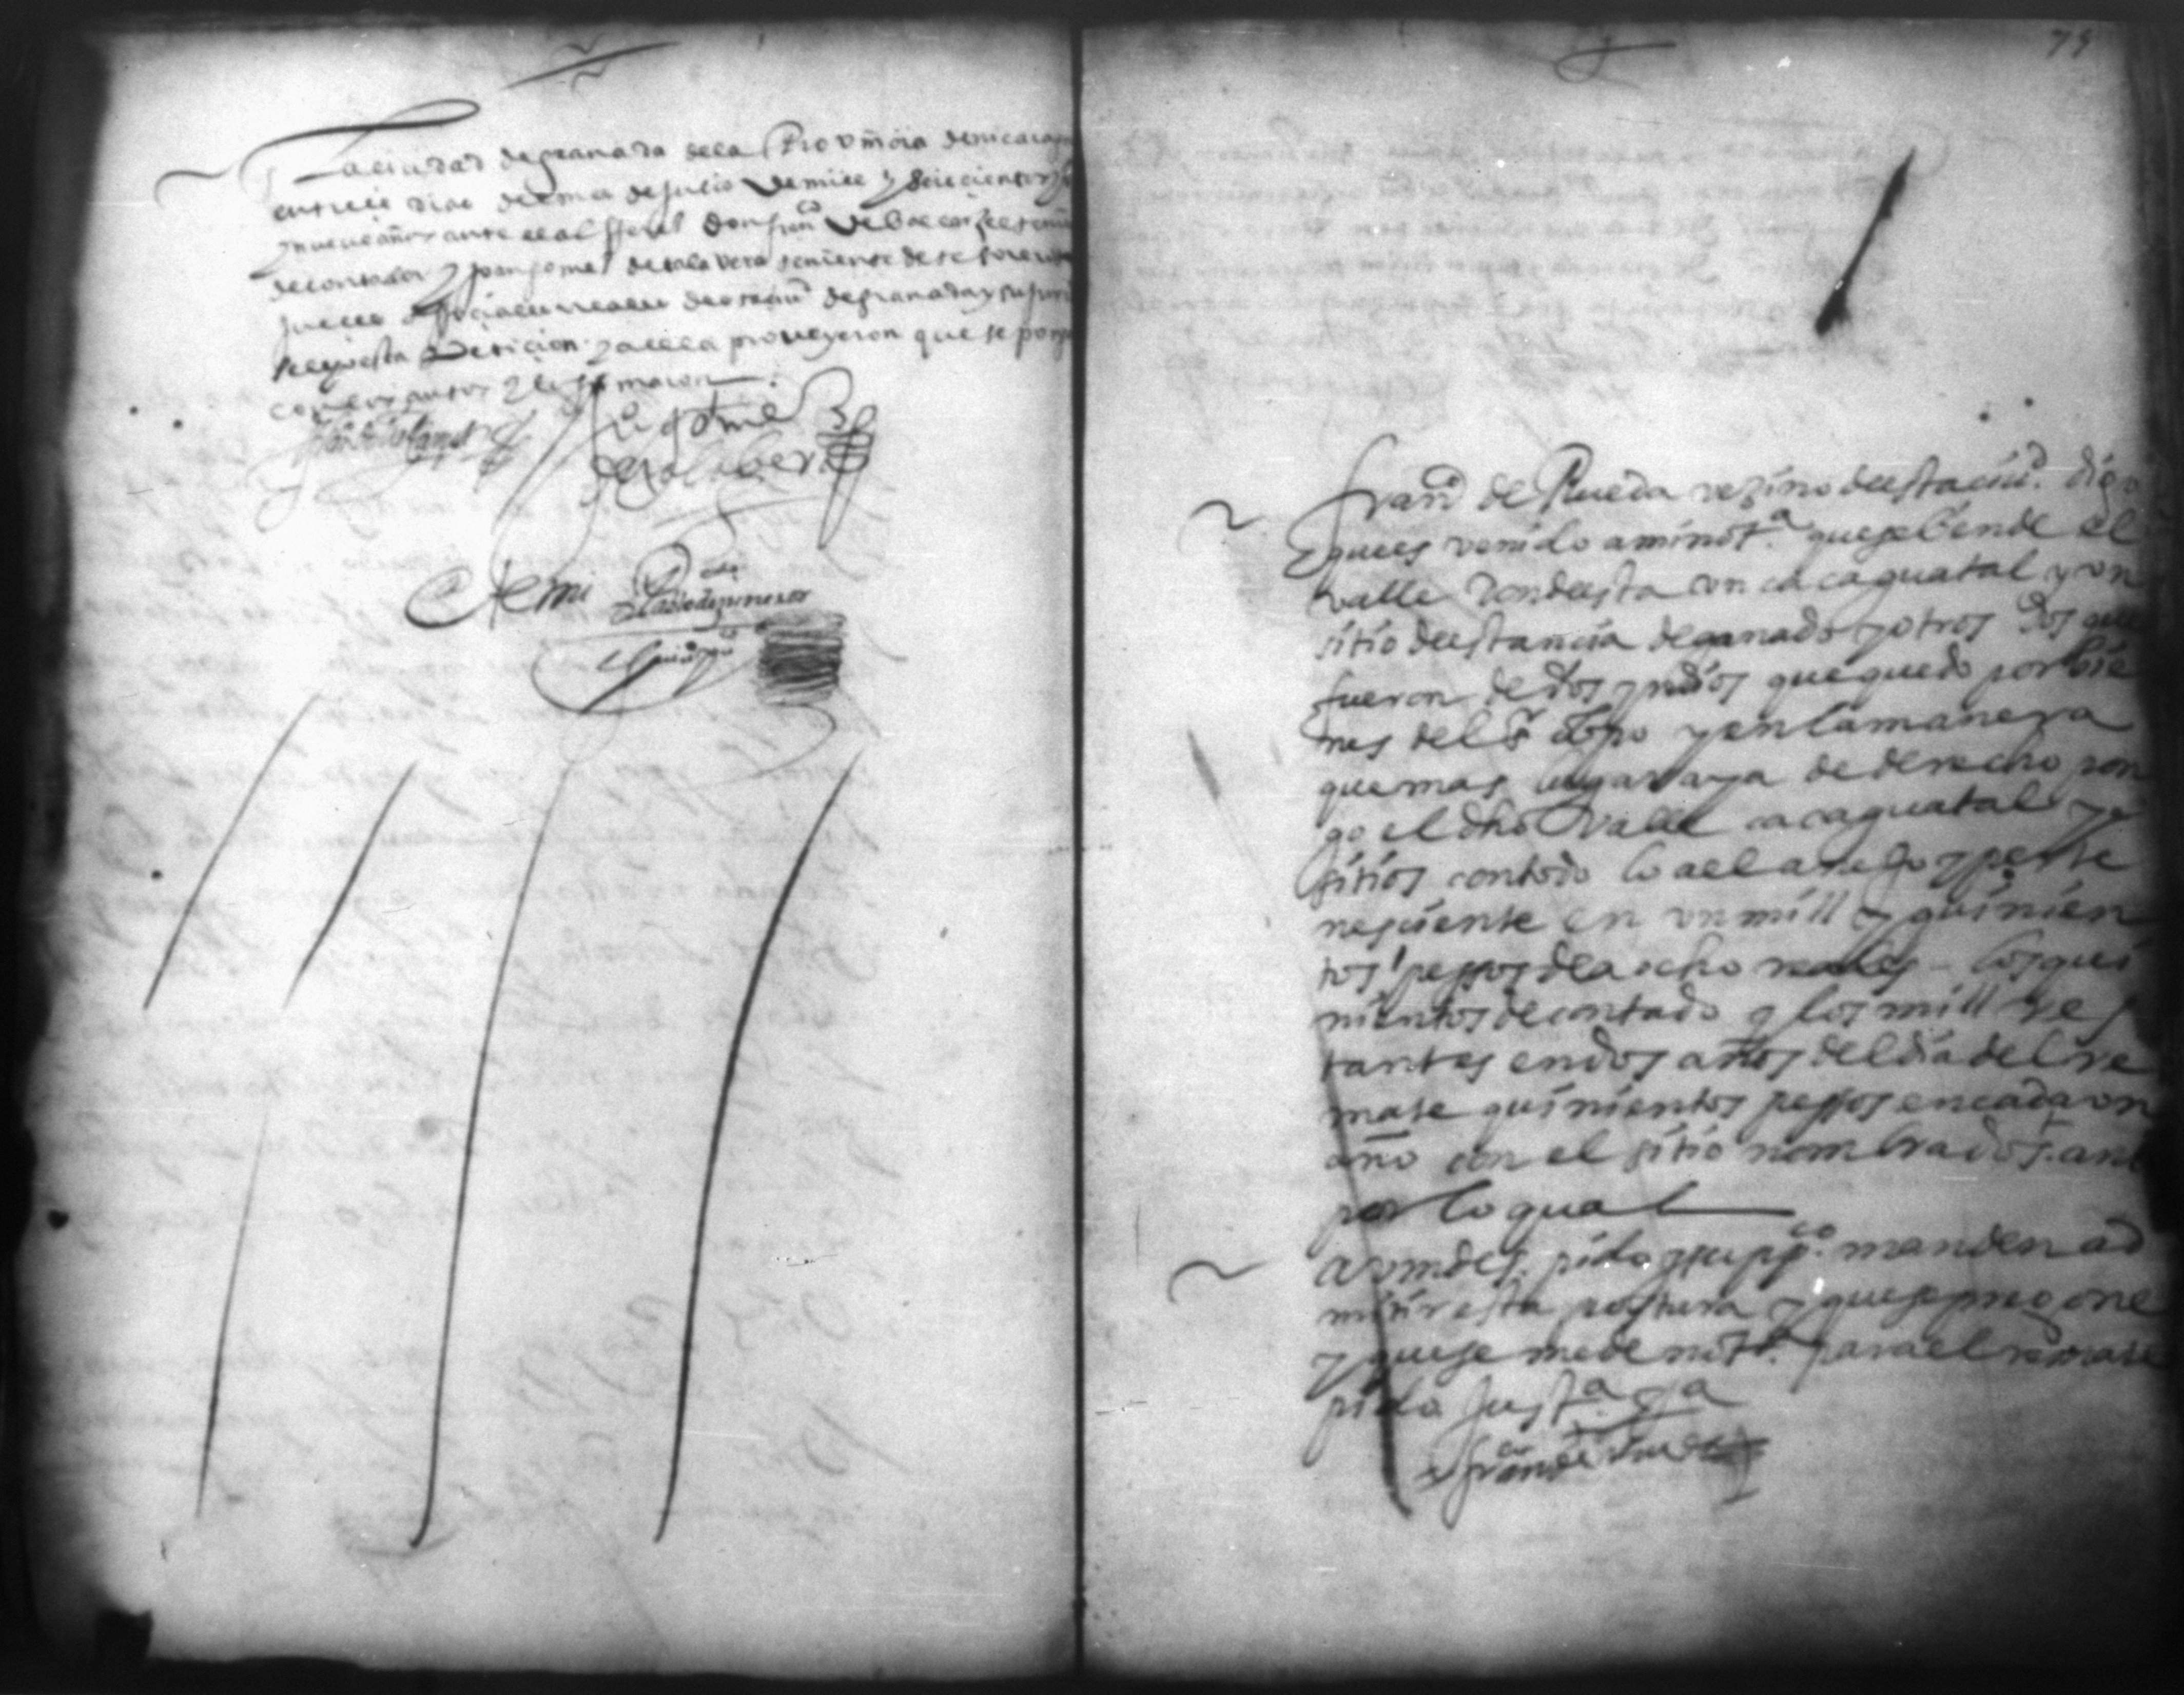 La ciudad de granada de la Provincia de nicaragu
en trece dias del mes de Julio de mill y seiscientos y
y nueve años ante el alfferes don franco
de contador y Joan gomes de talavera teniente de tesorero
jueces officiales reales de esta ciud de granada y su juri
peticion y a ella proveyeron que se ponga
con los autos y lo firmaron
Ju gomes
de talabera
Ante mi
79
franco de Rueda vezino de esta ciud. digo
que es venido a mi nota. que se bende el
valle donde esta un cacaguatal y un
sitio de estancia de ganado y otros dos que
fueron de dos yndios que quedo por bie
nes del sr obpo y en la manera
que mas lugar aya de derecho pon
go el dho valle cacaguatal y
sitios con todo lo a el anejo y perte
nesciente en un mill y quinien
tos pessos de a ocho reales - los qui
nientos de contado y los mill res
tantes en dos años del dia del re
mate quinientos pessos en cada un
año con el sitio nombrado s. ant
por lo qual
a vmdes. pido y suppco. manden ad
mitir esta postura y que se pregone
y que se me de nota. para el remate
pido justa
franco de Rueda